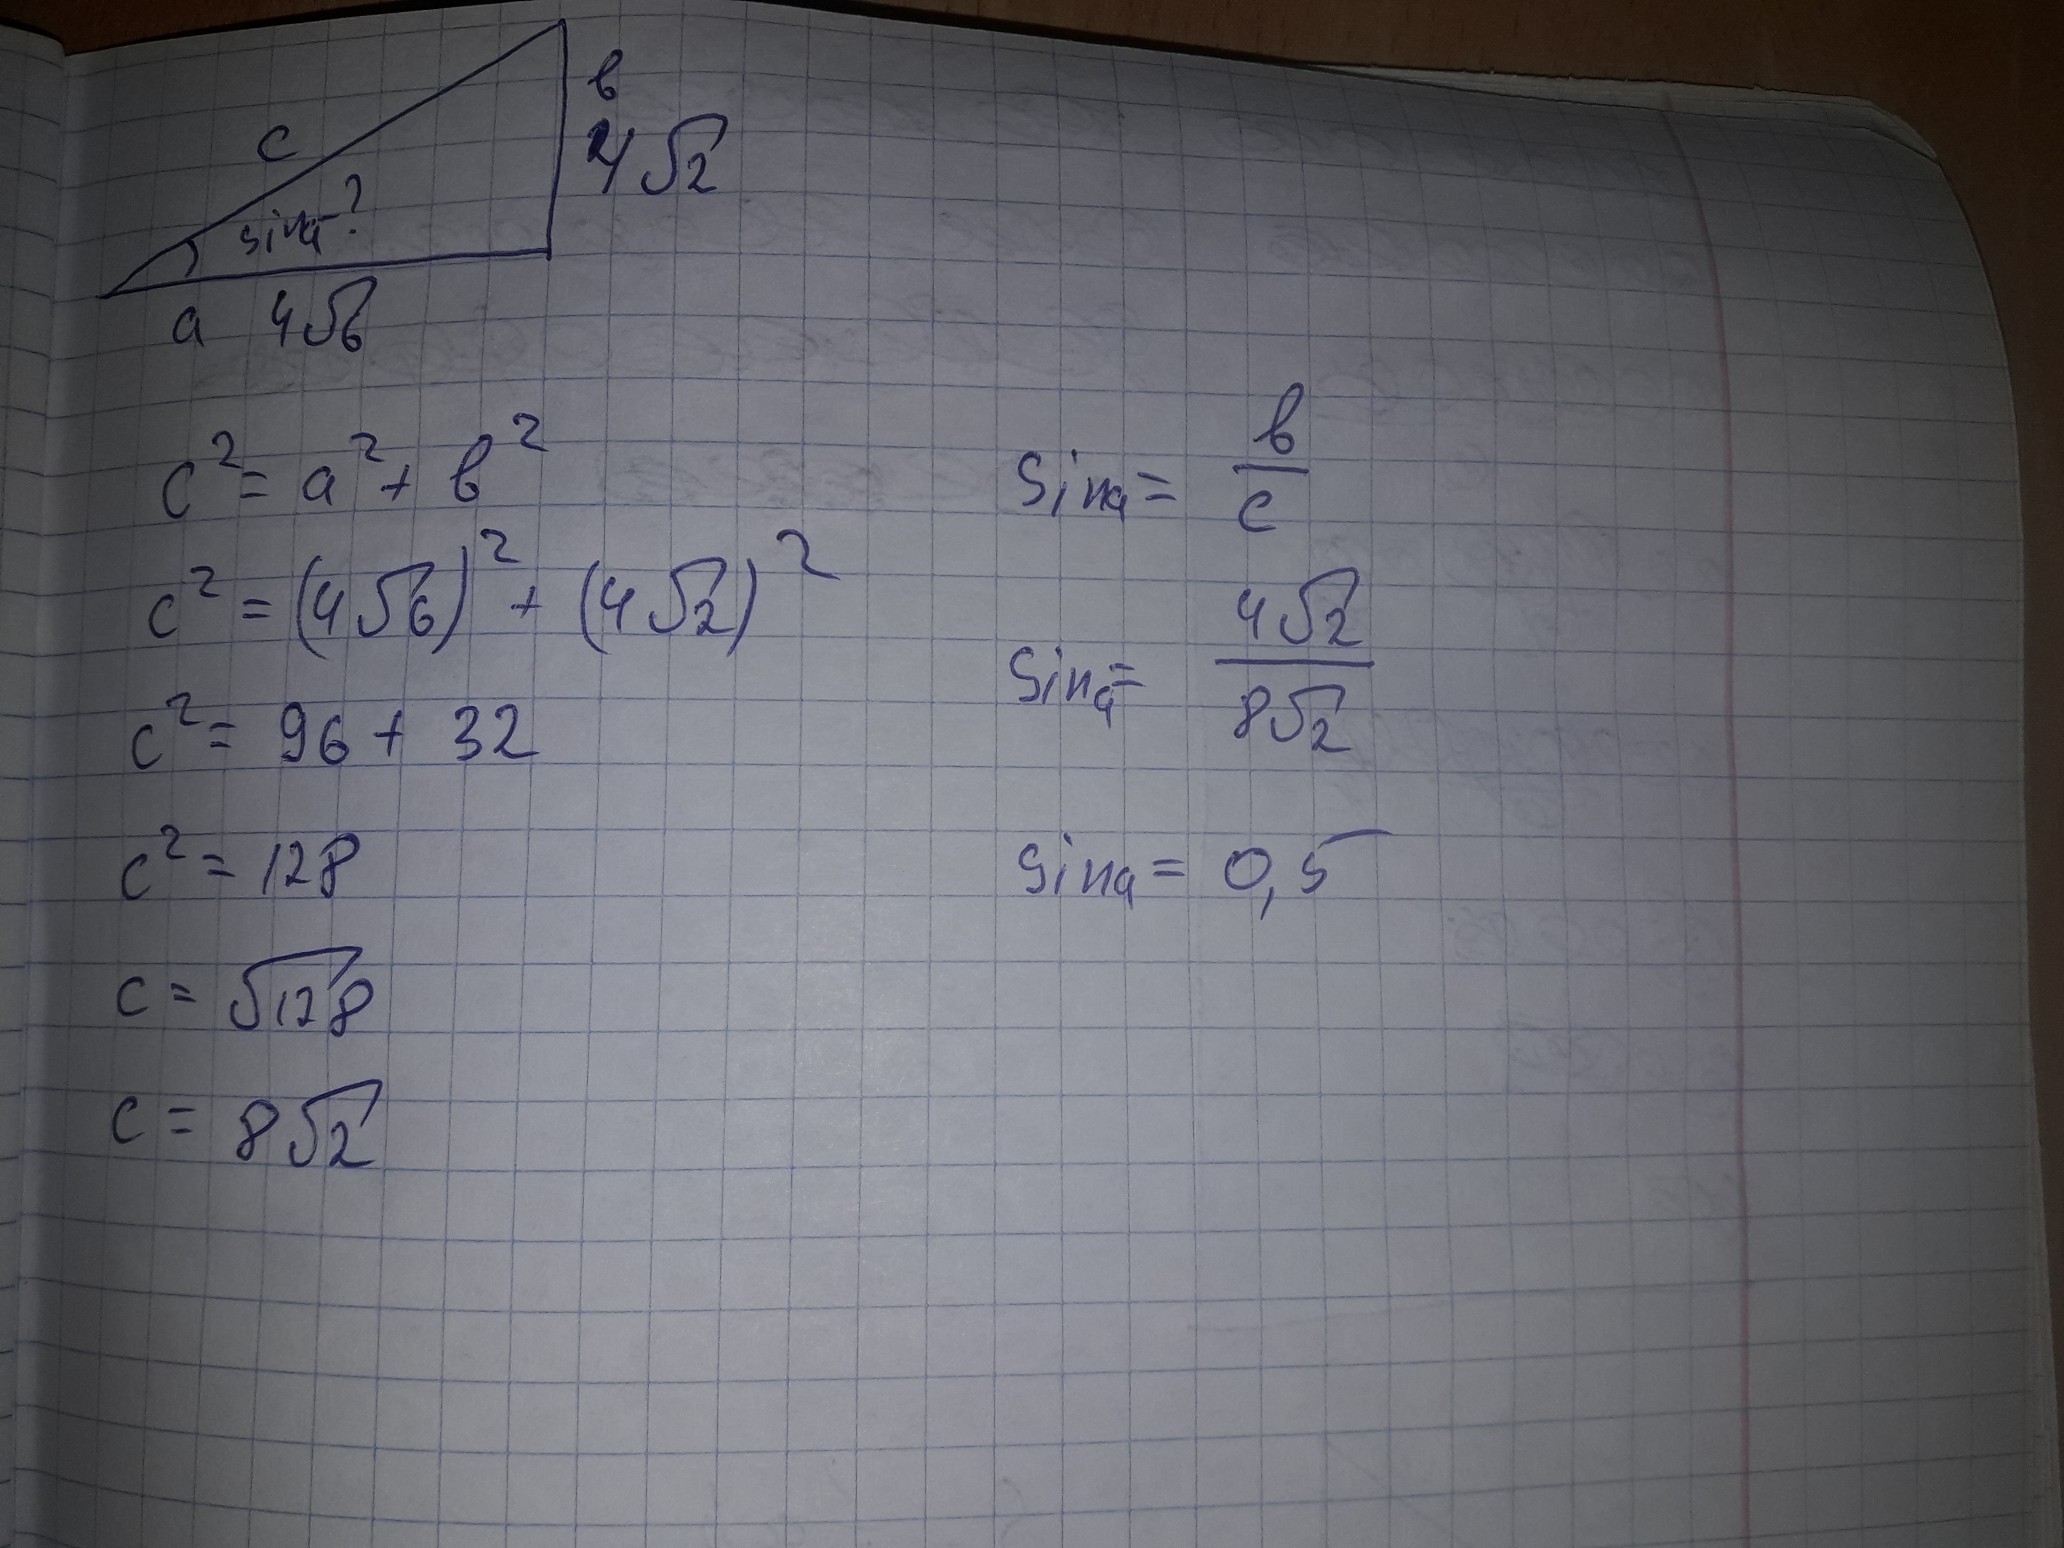 c
в
4√2
sinα-?
a 4√6
c² = a² + в²
c² = (4√6)² + (4√2)²
c² = 96 + 32
c² = 128
c = √128
c = 8√2
Sinα = в/c
Sinα = 4√2/8√2
Sinα = 0,5